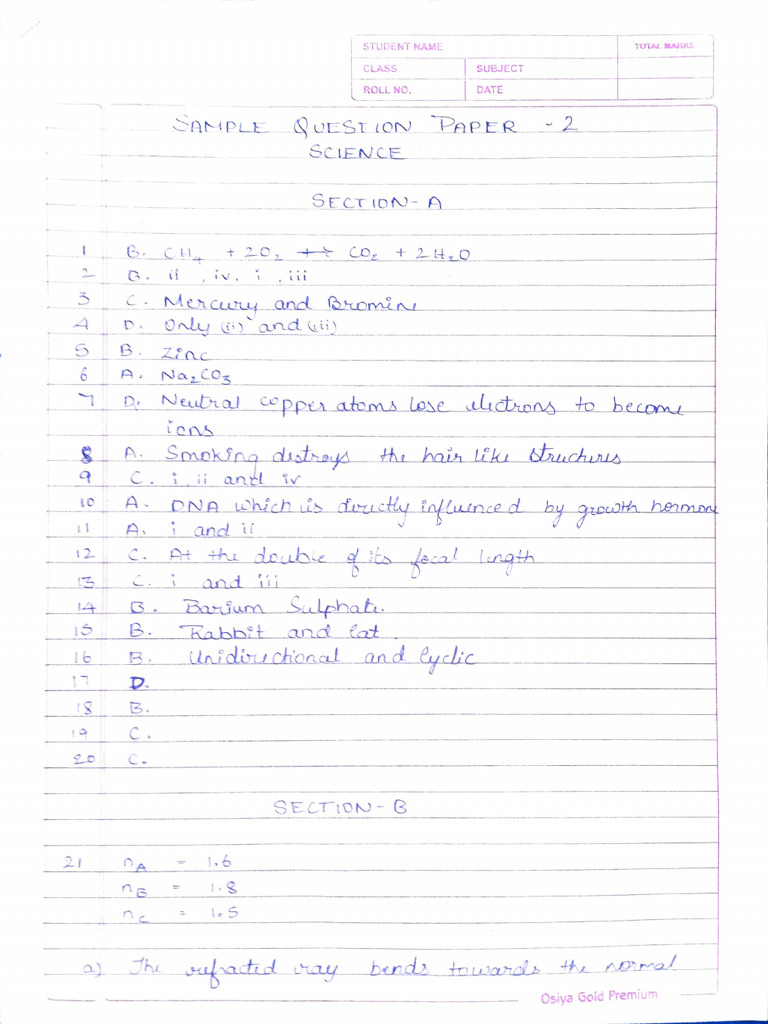 STUDENT NAME TOTAL MARKS
CLASS SUBJECT
ROLL NO. DATE
SAMPLE QUESTION PAPER - 2
SCIENCE
SECTION-A
1 B. CH4 + 2O2 → CO2 + 2H2O
2 B. ii, iv. i, iii
3 C. Mercury and Bromine
4 D. Only (ii) and (iii)
5 B. Zinc
6 A. Na2CO3
7 D. Neutral copper atoms lose electrons to become
ions
8 A. Smoking destroys the hair like structures
9 C. i, ii and iv
10 A. DNA which is directly influenced by growth hormone
11 A. i and ii
12 C. At the double of its focal length
13 C. i and iii
14 B. Barium Sulphate.
15 B. Rabbit and Cat.
16 B. Unidirectional and Cyclic
17 D.
18 B.
19 C.
20 C.
SECTION-B
21 nA = 1.6
nB = 1.8
nC = 1.5
a) The refracted ray bends towards the normal
Osiya Gold Premium